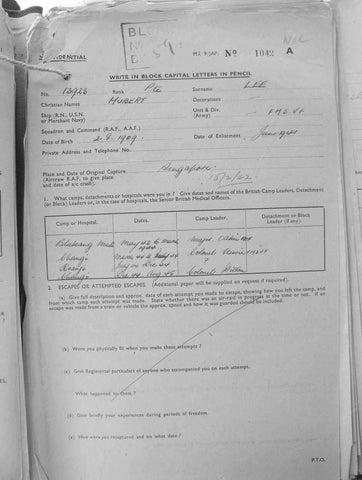 CONFIDENTIAL
BL
59
M.I. 9/JAP/ No 1042 A
WRITE IN BLOCK CAPITAL LETTERS IN PENCIL
No. 13928 Rank Pte Surname LEE
Christian Names HUBERT Decorations
Ship (R.N., U.S.N. or Merchant Navy) Unit & Div. (Army) F.M.S.V.F
Squadron and Command (R.A.F., A.A.F.)
Date of Birth 2.8.1909 Date of Enlistment
Private Address and Telephone No.
Place and Date of Original Capture Singapore 15/2/42
(Aircrew R.A.F. to give place and date of a/c crash).
1. What camps, detachments or hospitals were you in? Give dates and names of the British Camp Leaders, Detachment
(or Block) Leaders or, in the case of hospitals, the Senior British Medical Officers.
Camp or Hospital. Dates. Camp Leader. Detachment or Block Leader (if any).
May 42 to March 1944 Major
Changi March 44 to July 44 Colonel
July 44 Dec 44 ?
Changi Dec 44 Aug 45 Colonel
2. ESCAPES OR ATTEMPTED ESCAPES. (Additional paper will be supplied on request if required).
(a) Give full description and approx. date of each attempt you made to escape, showing how you left the camp, and
from which camp each attempt was made. State whether there was an air-raid in progress at the time or not. If an
escape was made from a train or vehicle the approx. speed and how it was guarded should be included.
(b) Were you physically fit when you made these attempts?
(c) Give Regimental particulars of anyone who accompanied you on each attempt.
What happened to them?
(d) Give briefly your experiences during periods of freedom.
(e) How were you recaptured and on what date?
P.T.O.